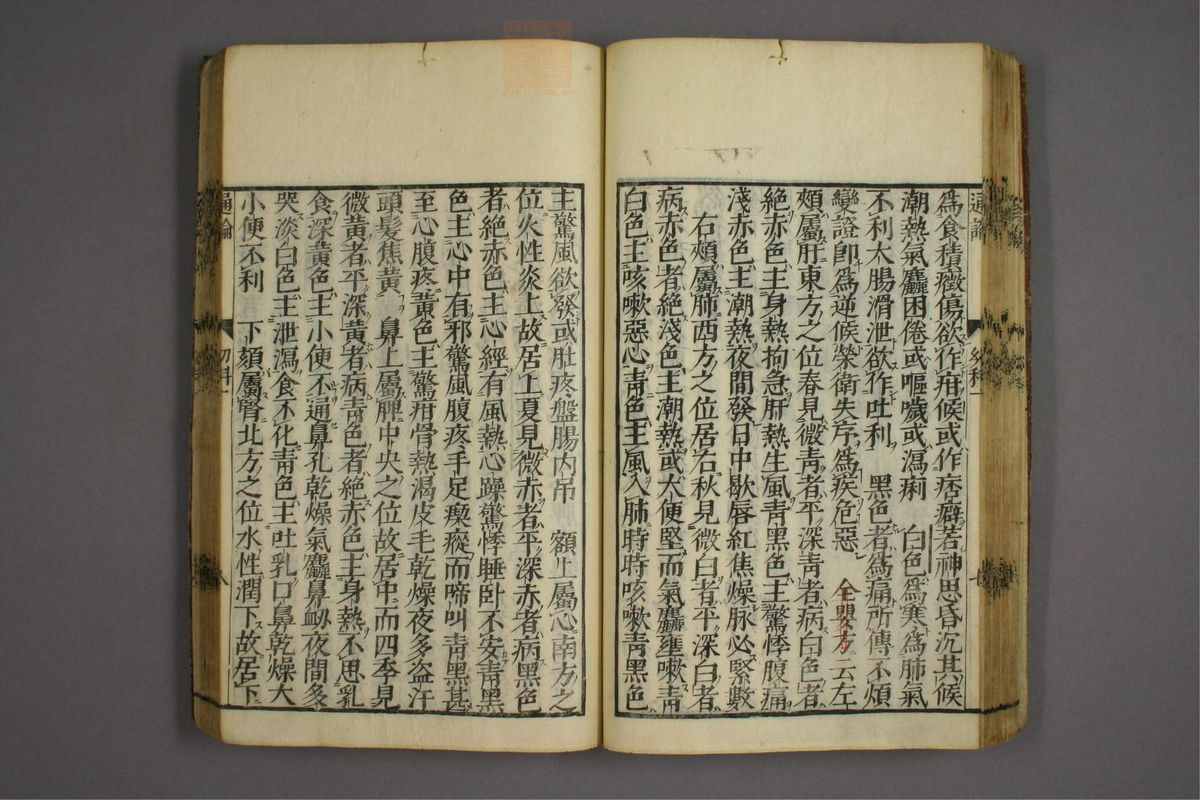 為食積癥傷欲作疳候或作痞癖若神思昏沉其候
潮熱氣麤困倦或嘔噦或瀉痢 白色為寒為肺氣
不利大腸滑泄欲作吐利 黑色者為痛所傳不煩
變證即為逆候榮衛失序為疾危惡 全嬰方云左
頰屬肝東方之位春見微青者平深青者病白色者
絕赤色主身熱拘急肝熱生風青黑色主驚悸腹痛
淺赤色主潮熱夜間發日中歇唇紅焦燥脉必緊數
右頰屬肺西方之位居右秋見微白者平深白者
病赤色者絕淺色主潮熱或大便堅而氣麤壅嗽青
白色主咳嗽惡心青色主風入肺時時咳嗽青黑色
主驚風欲發或肚疼盤腸内吊 額上屬心南方之
位火性炎上故居上夏見微赤者平深赤者病黑色
者絕赤色主心經有風熱心躁驚悸睡卧不安青黑
色主心中有邪驚風腹疼手足瘈瘲而啼叫青黑甚
至心腹疼黃色主驚疳骨熱渴皮毛乾燥夜多盗汗
頭髮焦黃 鼻上屬脾中央之位故居中而四季見
微黃者平深黃者病青色者絕赤色主身熱不思乳
食深黃色主小便不通鼻孔乾燥氣麤鼻衂夜間多
哭淡白色主泄瀉食不化青色主吐乳口鼻乾燥大
小便不利 下頦屬腎北方之位水性潤下故居下
通論
幼科一
八